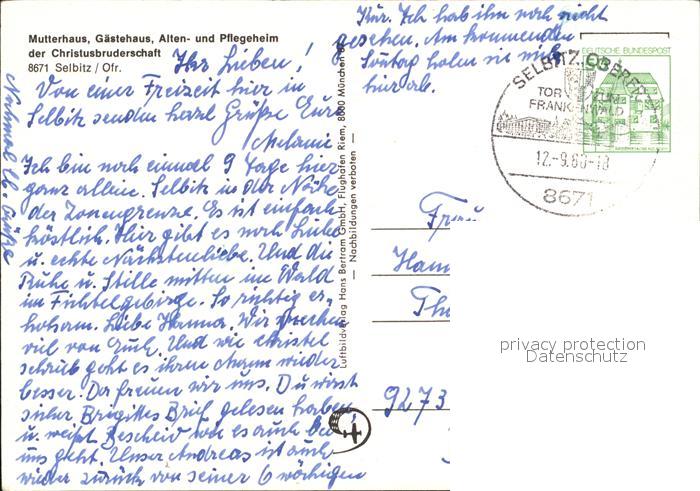 Mutterhaus, Gästehaus, Alten- und Pflegeheim
der Christusbruderschaft
8671 Selbitz / Ofr.
Ihr Lieben!
Von einer Freizeit hier in
Selbitz senden herzl. Grüße Eure
Melanie
Ich bin noch einmal 9 Tage hier
ganz allein. Selbitz in der Nähe
der Zonengrenze. Es ist einfach
köstlich. Hier gibt es noch Liebe
u. echte Nächstenliebe. Und die
Ruhe u. Stille mitten im Wald
im Fichtelgebirge. So richtig er-
holsam. Liebe Hanna. Wir sprechen
viel von Euch. Und wie Christel
schrieb geht es ihrem Mann wieder
besser. Da freuen wir uns. Du wirst
sicher Brigittes Brief gelesen haben
u. weißt Bescheid wie es auch bei
uns geht. Unser Andreas ist auch
wieder zurück von seiner 6 wöchigen
Kur. Ich hab ihn noch nicht
gesehen. Am kommenden
Sonntag holen sie mich
hier ab.
Nochmal lb. Grüße
Luftbildverlag Hans Bertram GmbH, Flughafen Riem, 8000 München 87
— Nachbildungen verboten —
DEUTSCHE BUNDESPOST
SELBITZ, OBERFR
TOR ZUM
FRANKENWALD
12.-9.80-18
8671
Frau
Hann
Th
9273
privacy protection
Datenschutz